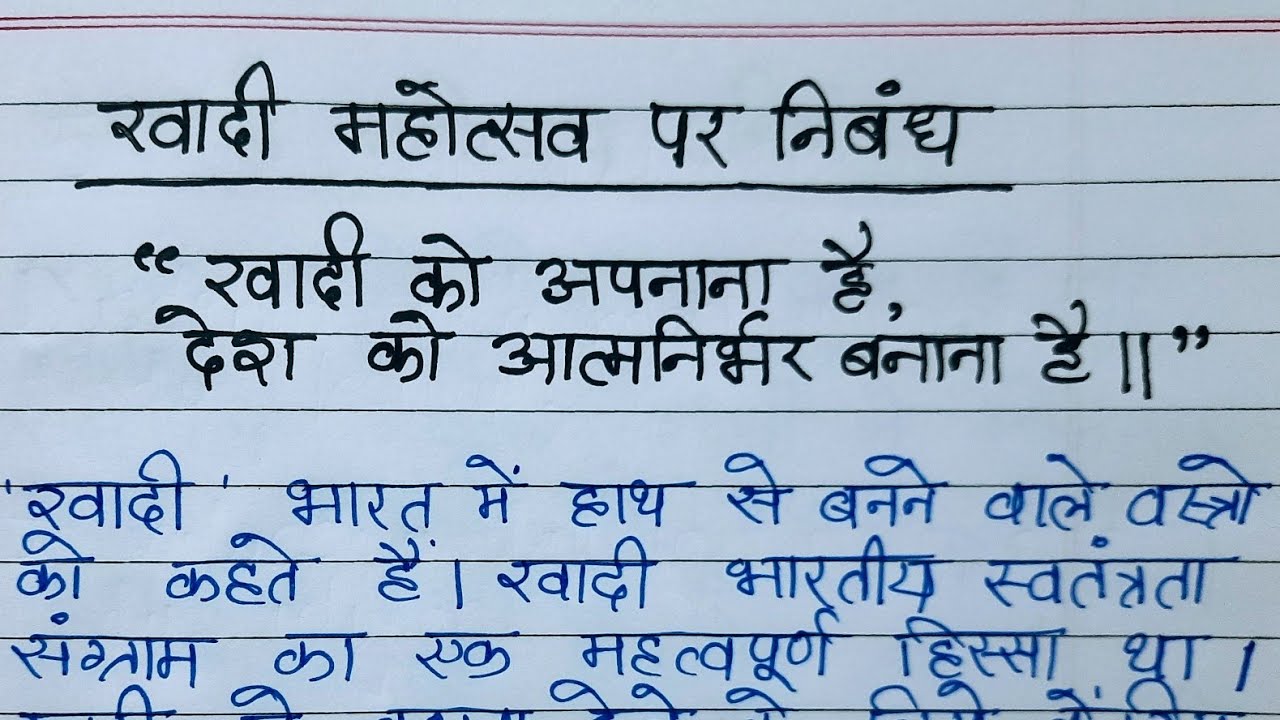 खादी महोत्सव पर निबंध
“ खादी को अपनाना है,
देश को आत्मनिर्भर बनाना है॥”
'खादी' भारत में हाथ से बनने वाले वस्त्रो
को कहते हैं। खादी भारतीय स्वतंत्रता
संग्राम का एक महत्वपूर्ण हिस्सा था।